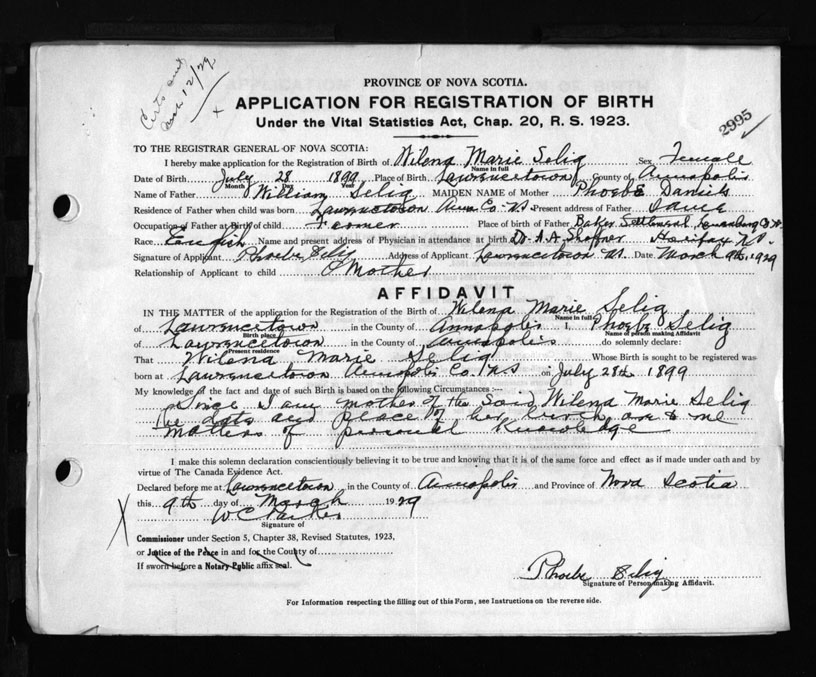 Certs and
Mch 12/29
PROVINCE OF NOVA SCOTIA.
APPLICATION FOR REGISTRATION OF BIRTH
Under the Vital Statistics Act, Chap. 20, R. S. 1923.
2995
TO THE REGISTRAR GENERAL OF NOVA SCOTIA:
I hereby make application for the Registration of Birth of Wilena Marie Selig Sex Female
Name in full
Date of Birth July 28 1899 Place of Birth Lawrencetown County of Annapolis
Month Day Year
Name of Father William Selig MAIDEN NAME of Mother Phoebe Daniels
Residence of Father when child was born Lawrencetown Anna Co. NS Present address of Father Same
Occupation of Father at Birth of child Farmer Place of birth of Father Baker Settlement Lunenburg Co
Race English Name and present address of Physician in attendance at birth Dr. A. A. Shaffner Halifax N.S.
Signature of Applicant Phoebe Selig Address of Applicant Lawrencetown NS. Date March 9th, 1929
Relationship of Applicant to child Mother
AFFIDAVIT
IN THE MATTER of the application for the Registration of the Birth of Wilena Marie Selig
Name in full
of Lawrencetown in the County of Annapolis I, Phoebe Selig
Birth place Name of person making Affidavit
of Lawrencetown in the County of Annapolis do solemnly declare:
Present residence
That Wilena Marie Selig Whose Birth is sought to be registered was
born at Lawrencetown Annapolis Co. NS on July 28th 1899
My knowledge of the fact and date of such Birth is based on the following Circumstances :—
Since I am mother of the said Wilena Marie Selig
the date and place of her birth are to me
matters of personal knowledge
I make this solemn declaration conscientiously believing it to be true and knowing that it is of the same force and effect as if made under oath and by
virtue of The Canada Evidence Act.
Declared before me at Lawrencetown in the County of Annapolis and Province of Nova Scotia
this 9th day of March 1929
W C Parker
Signature of
Commissioner under Section 5, Chapter 38, Revised Statutes, 1923,
or Justice of the Peace in and for the County of
If sworn before a Notary Public affix seal.
Phoebe Selig
Signature of Person making Affidavit.
For Information respecting the filling out of this Form, see Instructions on the reverse side.